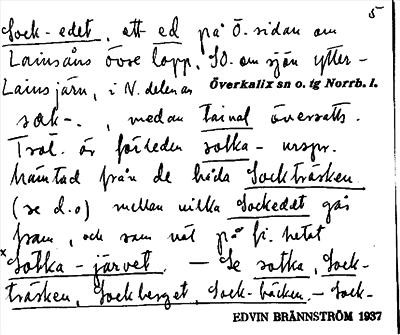 5
Sock-edet, ett ed på Ö. sidan om
Lainsåns övre lopp, SO. om sjön ytter-
Lainsjärn, i N. delen av Överkalix sn o. tg Norrb. l.
sok-. , medan tainal översatts.
Trol. är förleden sotka- urspr.
hämtad från de båda Sockträsken
(se d.o) mellan vilka Sockedet går
fram, och som väl på fi. hetat
*Sotka-järvet. — Se sotka, Sock-
träsken, Sockberget, Sock-bäcken, – Sock-
EDVIN BRÄNNSTRÖM 1937